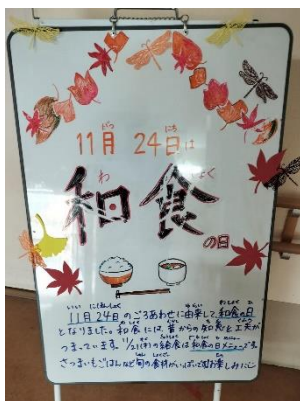 11月 24日は
和食
の日
11月24日のごろあわせに由来して和食の日
となりました。和食には、昔からの知恵と工夫が
つまっています。11/21(木)の給食は和食の日メニューです。
さつまいもごはんなど旬の食材がいっぱいでお楽しみに